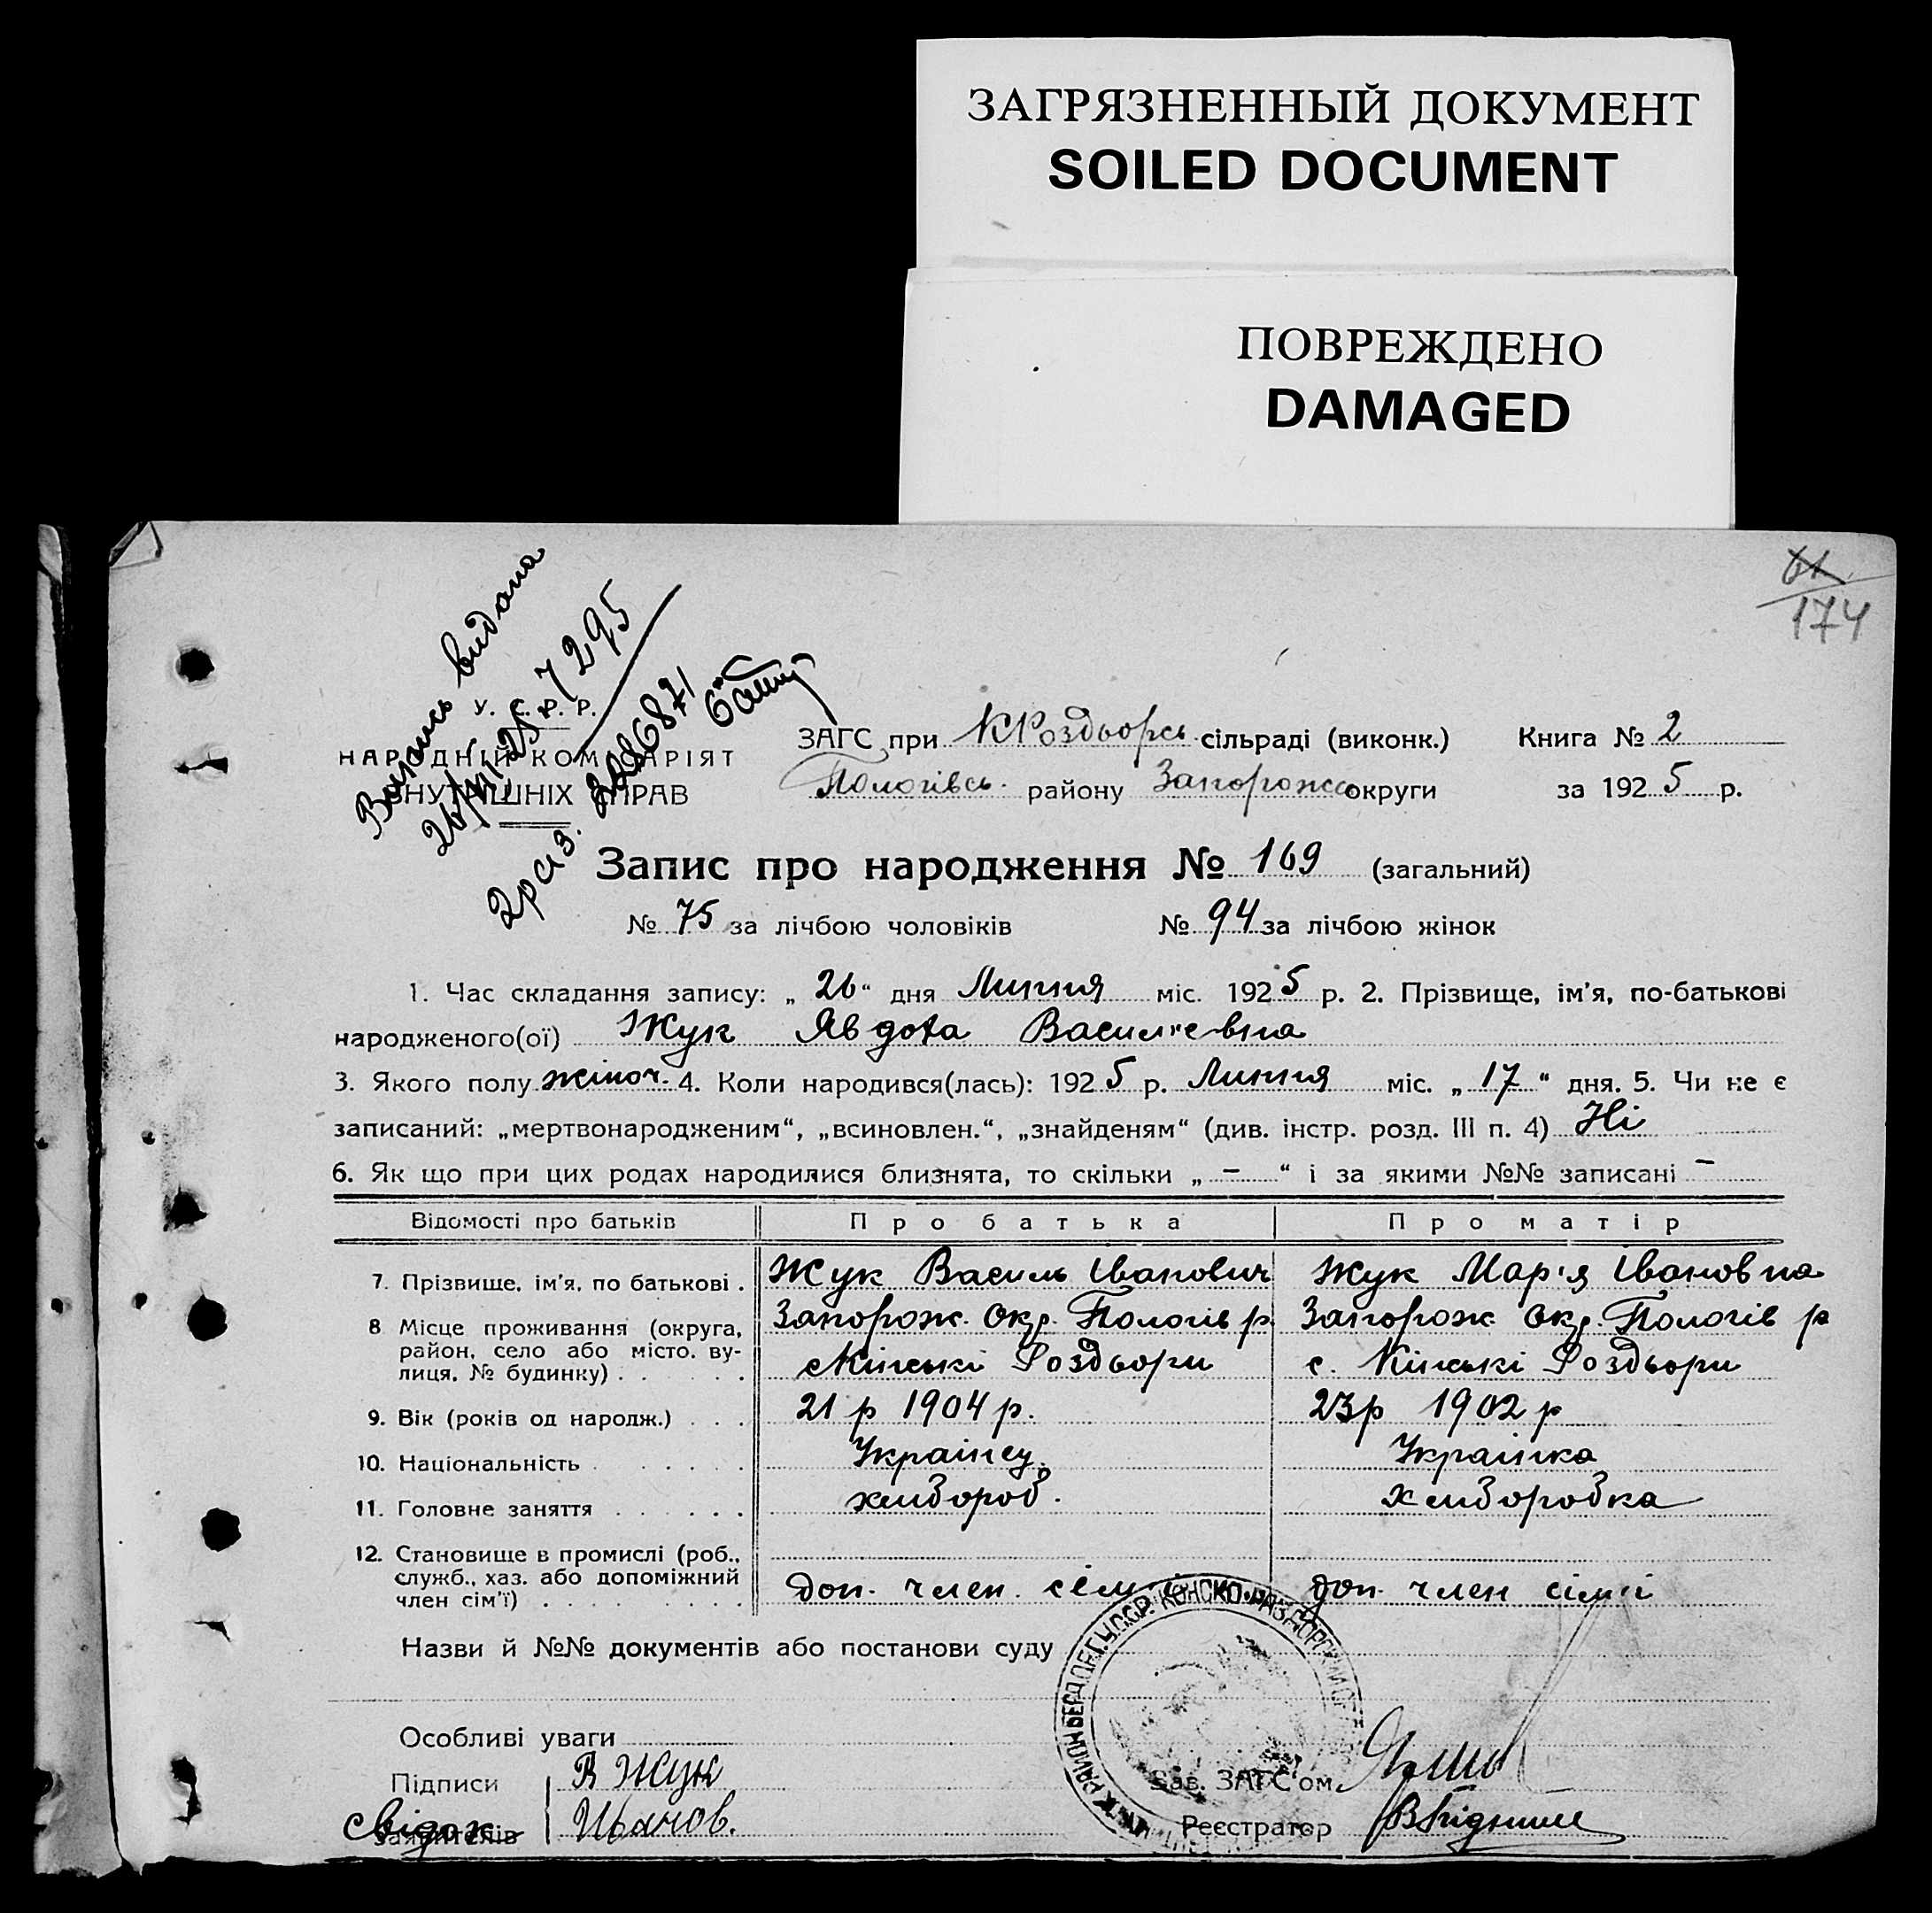 ЗАГРЯЗНЕННЫЙ ДОКУМЕНТ
SOILED DOCUMENT
ПОВРЕЖДЕНО
DAMAGED
61
174
Випись видана
295
2 раз.
У. С. Р. Р.
НАРОДНІЙ КОМІСАРІЯТ
ВНУТРІШНІХ СПРАВ
ЗАГС при КРоздьорсь сільраді (виконк.) Книга № 2
Пологівсь. району Запорожс округи за 1925 р.
Запис про народження № 169 (загальний)
№ 75 за лічбою чоловіків № 94 за лічбою жінок
1. Час складання запису: „ 26 “ дня Липня міс. 1925 р. 2. Прізвище, ім’я, по-батькові
народженого(ої) Жук Явдоха Василієвна
3. Якого полу жіноч. 4. Коли народився(лась): 1925 р. Липня міс. „ 17 “ дня. 5. Чи не є
записаний: „мертвонародженим“, „всиновлен.“, „знайденям“ (див. інстр. розд. III п. 4) Ні
6. Як що при цих родах народилися близнята, то скільки „ – “ і за якими №№ записані –
Відомості про батьків Про батька Про матір
7. Прізвище, ім’я, по батькові . Жук Василь Іванович Жук Мар'я Івановна
8 Місце проживання (округа, Запорож. окр. Пологів р. Запорож окр. Пологів р
район, село або місто, ву- с Кінські Роздьори с. Кінські Роздьори
лиця, № будинку) . . . . .
9. Вік (років од народж.) . . . 21 р 1904 р. 23р 1902 р
10. Національність . . . . . Українец. Українка
11. Головне заняття . . . . . . хлібороб. хліборобка
12. Становище в промислі (роб.,
служб., хаз. або допоміжний
член сім’ї) . . . . . . . . . доп. член. сем'і доп. член сім'і
Назви й №№ документів або постанови суду
Особливі уваги
Підписи В Жук Зав. ЗАГС’ом
свідок заявителів Иванов. Реєстратор